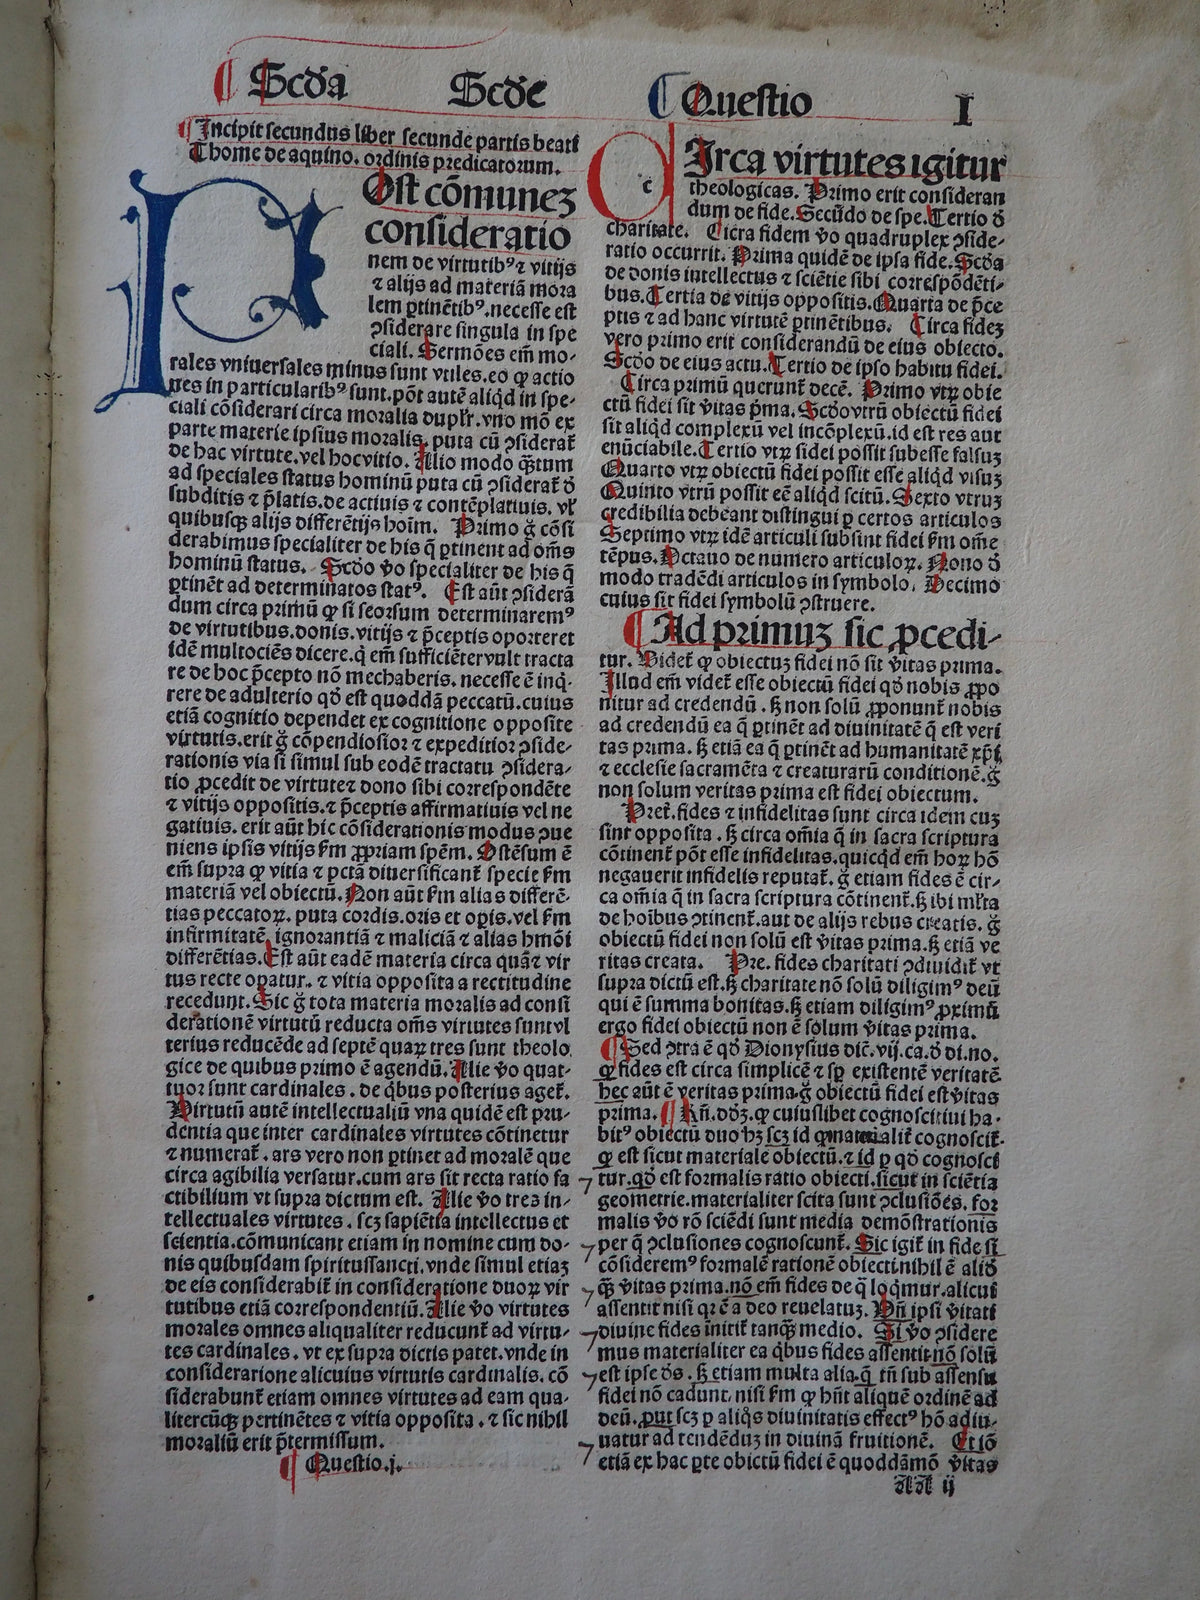 Scďa Scďe Questio I
Incipit secundus liber secunde partis beati
Thome de aquino. ordinis predicatorum.
Ost cōmunez
consideratio
nem de virtutibꝰ ⁊ vitijs
⁊ alijs ad materiā mora
lem ꝑtinētibꝰ. necesse est
ꝯsiderare singula in spe
ciali. Sermōes em̄ mo-
rales vniuersales minus sunt vtiles. eo ꝙ actio
nes in particularibꝰ sunt. pōt autē aliqd in spe-
ciali cōsiderari circa moralia duplr̄. vno mō ex
parte materie ipsius moralis. puta cū ꝯsiderat̄
de hac virtute. vel hoc vitio. Alio modo q̄tum
ad speciales status hominū puta cū ꝯsiderat̄ ď
subditis ⁊ p̄latis. de actiuis ⁊ contēplatiuis. vl̄
quibusqꝫ alijs differētijs hoīm. Primo g̊ cōsi
derabimus specialiter de his q̄ ꝑtinent ad om̄s
hominū status. Scďo v̊o specialiter de his q̄
ꝑtinēt ad determinatos statꝰ. Est aūt ꝯsiderā
dum circa primū ꝙ si seorsum determinaremꝰ
de virtutibus. donis. vitijs ⁊ p̄ceptis oporteret
idē multociēs dicere. q̇ em̄ sufficiēter vult tracta
re de hoc p̄cepto nō mechaberis. necesse ē inq̇-
rere de adulterio qď est quoddā peccatū. cuius
etiā cognitio dependet ex cognitione opposite
virtutis. erit g̊ cōpendiosior ⁊ expeditior ꝯside-
rationis via si simul sub eodē tractatu ꝯsidera-
tio ꝓcedit de virtute ⁊ dono sibi correspondēte
⁊ vitijs oppositis. ⁊ p̄ceptis affirmatiuis vel ne
gatiuis. erit aūt hic cōsiderationis modus ꝯue
niens ipsis vitijs km̄ ꝓpriam spēm. Ostēsum ē
em̄ supra ꝙ vitia ⁊ pctā diuersificant̄ specie km̄
materiā vel obiectū. Non aūt km̄ alias differē-
tias peccatoꝝ. puta cordis. oris et oꝑis. vel km̄
infirmitatē ignorantiā ⁊ maliciā ⁊ alias hmōi
differētias. Est aūt eadē materia circa quā ⁊ vir
tus recte oꝑatur. ⁊ vitia opposita a rectitudine
recedunt. Sic g̊ tota materia moralis ad consi
derationē virtutū reducta om̄s virtutes sunt vl
terius reducēde ad septē quaꝝ tres sunt theolo
gice de quibus primo ē agendū. Alie v̊o quat-
tuor sunt cardinales. de q̇bus posterius aget̄.
Virtutū autē intellectualiū vna quidē est pru-
dentia que inter cardinales virtutes cōtinetur
⁊ numerat̄. ars vero non ꝑtinet ad moralē que
circa agibilia versatur. cum ars sit recta ratio fa
ctibilium vt supra dictum est. Alie v̊o tres in-
tellectuales virtutes. scꝫ sapiētia intellectus et
scientia. cōmunicant etiam in nomine cum do-
nis quibusdam spiritussancti. vnde simul etiaꝫ
de eis considerabit̄ in consideratione duoꝝ vir
tutibus etiā correspondentiū. Alie v̊o virtutes
morales omnes aliqualiter reducunt̄ ad virtu-
tes cardinales. vt ex supra dictis patet. vnde in
consideratione alicuius virtutis cardinalis. cō
siderabunt̄ etiam omnes virtutes ad eam qua-
litercūqꝫ pertinētes ⁊ vitia opposita. ⁊ sic nihil
moraliū erit p̄termissum.
Questio .j.
c
Irca virtutes igitur
theologicas. Primo erit consideran
dum de fide. Secūdo de spe. Tertio ď
charitate. Circa fidem v̊o quadruplex ꝯside-
ratio occurrit. Prima quidē de ipsa fide. Scďa
de donis intellectus ⁊ sciētie sibi correspōdēti-
bus. Tertia de vitijs oppositis. Quarta de p̄ce
ptis ⁊ ad hanc virtutē ꝑtinētibus. Circa fideꝫ
vero primo erit considerandū de eius obiecto.
Scďo de eius actu. Tertio de ipso habitu fidei.
Circa primū querunt̄ decē. Primo vtꝝ obie
ctū fidei sit v̊itas p̄ma. Scďo vtrū obiectū fidei
sit aliqd complexū vel incōplexū. id est res aut
enūciabile. Tertio vtꝝ fidei possit subesse falsuꝫ
Quarto vtꝝ obiectū fidei possit esse aliqd visuꝫ
Quinto vtrū possit eē aliqd scitū. Sexto vtruꝫ
credibilia debeant distingui ꝑ certos articulos
Septimo vtꝝ idē articuli subsint fidei km̄ om̄e
tēpus. Octauo de numero articuloꝝ. Nono ď
modo tradēdi articulos in symbolo. Decimo
cuius sit fidei symbolū ꝯstruere.
Ad primuꝫ sic ꝓcedi-
tur. Videt̄ ꝙ obiectuꝫ fidei nō sit v̊itas prima.
Illud em̄ videt̄ esse obiectū fidei qď nobis ꝓpo
nitur ad credendū. sꝫ non solū ꝓponunt̄ nobis
ad credendū ea q̄ ꝑtinēt ad diuinitatē q̄ est veri
tas prima. sꝫ etiā ea q̄ ꝑtinēt ad humanitatē xp̄i
⁊ ecclesie sacramēta ⁊ creaturarū conditionē. g̊
non solum veritas prima est fidei obiectum.
Pret̄. fides ⁊ infidelitas sunt circa idem cuꝫ
sint opposita. sꝫ circa om̄ia q̄ in sacra scriptura
cōtinent̄ pōt esse infidelitas. quicqd em̄ hoꝝ hō
negauerit infidelis reputat̄. g̊ etiam fides ē cir-
ca om̄ia q̄ in sacra scriptura cōtinent̄. sꝫ ibi ml̄ta
de hoībus ꝯtinent̄. aut de alijs rebus creatis. g̊
obiectū fidei non solū est v̊itas prima. sꝫ etiā ve
ritas creata. Pre. fides charitati ꝯdiuidit̄ vt
supra dictū est. sꝫ charitate nō solū diligimꝰ deū
qui ē summa bonitas. sꝫ etiam diligimꝰ ꝓximū
ergo fidei obiectū non ē solum v̊itas prima.
Sed ꝯtra ē qď Dionysius dic̄. vij. ca. ď di. no.
ꝙ fides est circa simplicē ⁊ sꝑ existentē veritatē
hec aūt ē veritas prima. g̊ obiectū fidei est v̊itas
prima. Rn̄. dďꝫ. ꝙ cuiuslibet cognoscitiui ha-
bitꝰ obiectū duo hꝫ scꝫ id ꝙ materialit̄ cognoscit̄.
ꝙ est sicut materiale obiectū. ⁊ id ꝑ qď cognosci
tur. qď est formalis ratio obiecti. sicut in sciētia
geometrie. materialiter scita sunt ꝯclusiōes. for
malis v̊o rō sciēdi sunt media demōstrationis
per q̄ ꝯclusiones cognoscunt̄. Sic igit̄ in fide si
cōsideremꝰ formalē rationē obiecti. nihil ē aliď
q̄ꝫ v̊itas prima. nō em̄ fides de q̄ loq̇mur. alicui
assentit nisi qꝛ ē a deo reuelatuꝫ. Vn̄ ipsi v̊itati
diuine fides īnitit̄ tanq̄ꝫ medio. Si v̊o ꝯsidere
mus materialiter ea q̇bus fides assentit. nō solū
est ipse de̊s. sꝫ etiam multa alia. q̄ tn̄ sub assensu
fidei nō cadunt. nisi km̄ ꝙ hn̄t aliquē ordinē ad
deū. put scꝫ ꝑ aliq̊s diuinitatis effectꝰ hō adiu-
uatur ad tendēduꝫ in diuinā fruitionē. Et iō
etiā ex hac ꝑte obictū fidei ē quoddāmō v̊itas
AA ij